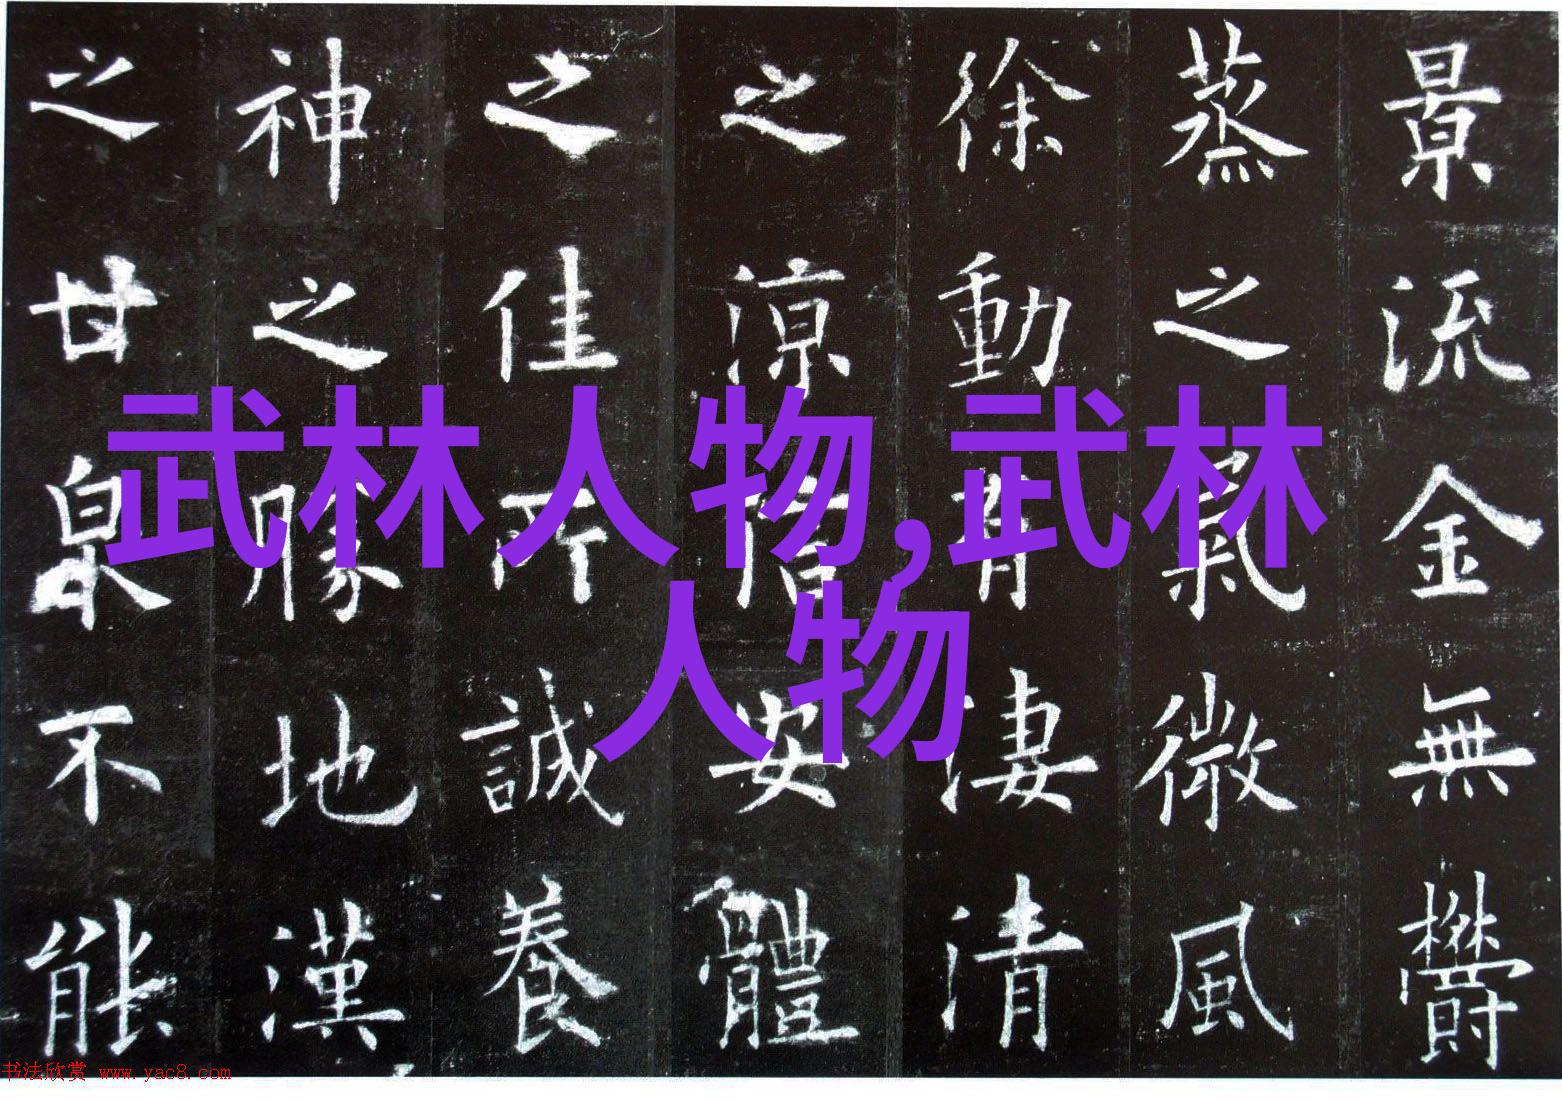 武林人物,武林
人物
景流金無鬱
蒸之氣微風
徐動有淒清
之涼信安體
之佳所誠養
神之勝地漢
之甘泉不能
书法欣赏 www.yac8.com